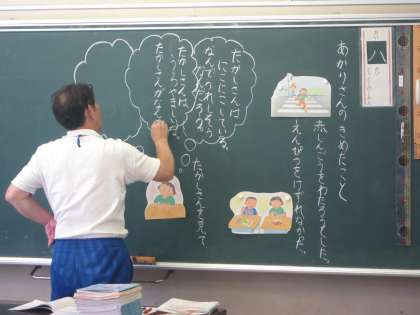 八
あかりさんのきめたこと
赤しんごうをわたろうとした。
えんぴつをけずれなかった。
たかしさんを見て
たかしさんは、
にこにこしている。
なんでうれしそう
なんだろうな。
たかしさんは、
たかしさんがなぜ